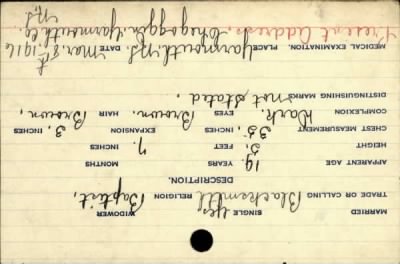 MARRIED SINGLE yes WIDOWER
TRADE OR CALLING Blacksmith RELIGION Baptist,
DESCRIPTION.
APPARENT AGE 19. YEARS MONTHS
HEIGHT 5, FEET 7. INCHES
CHEST MEASUREMENT 35, INCHES EXPANSION 3, INCHES
COMPLEXION Dark. EYES Brown. HAIR Brown,
DISTINGUISHING MARKS not stated,
MEDICAL EXAMINATION. PLACE Yarmouth, N.S. DATE Mar. 8th. 1916
Present Address, Chegoggin, Yarmouth Co
N.S.